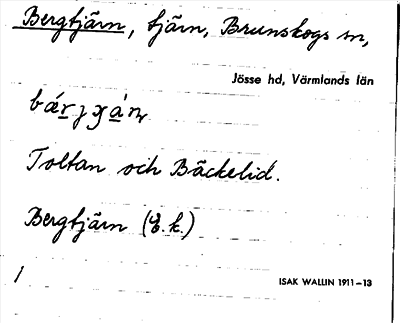 Bergtjärn, tjärn, Brunskogs sn,
Jösse hd, Värmlands län
Toltan och Bäckelid.
Bergtjärn (E.k.)
1
ISAK WALLIN 1911–13